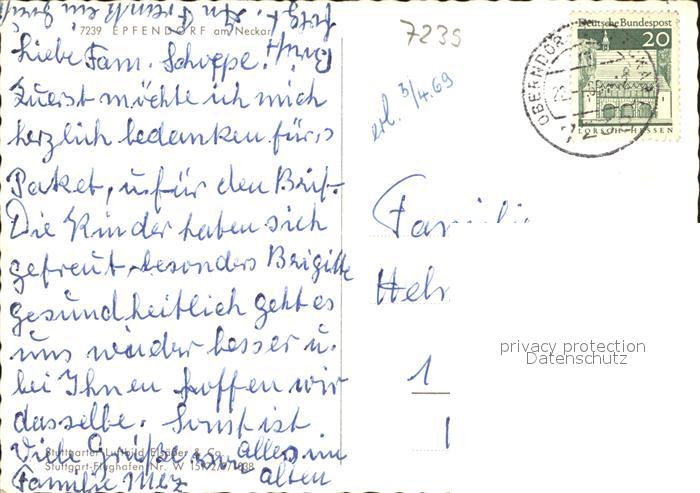 7239 EPFENDORF am Neckar
7239
Liebe Fam. Schoppe!
Zuerst möchte ich mich
herzlich bedanken für's
Paket, u. für den Brief.
Die Kinder haben sich
gefreut, besonders Brigitte
gesundheitlich geht es
uns wieder besser u.
bei Ihnen hoffen wir
dasselbe. Sonst ist
alles im
alten
Viele Grüße von
Familie Merz
Stuttgarter Luftbild Elsäßer & Co.
Stuttgart-Flughafen Nr. W
erl. 3/4.69
Deutsche Bundespost
20
LORSCH/HESSEN
OBERNDORF
Familie
Helr
1
privacy protection
Datenschutz